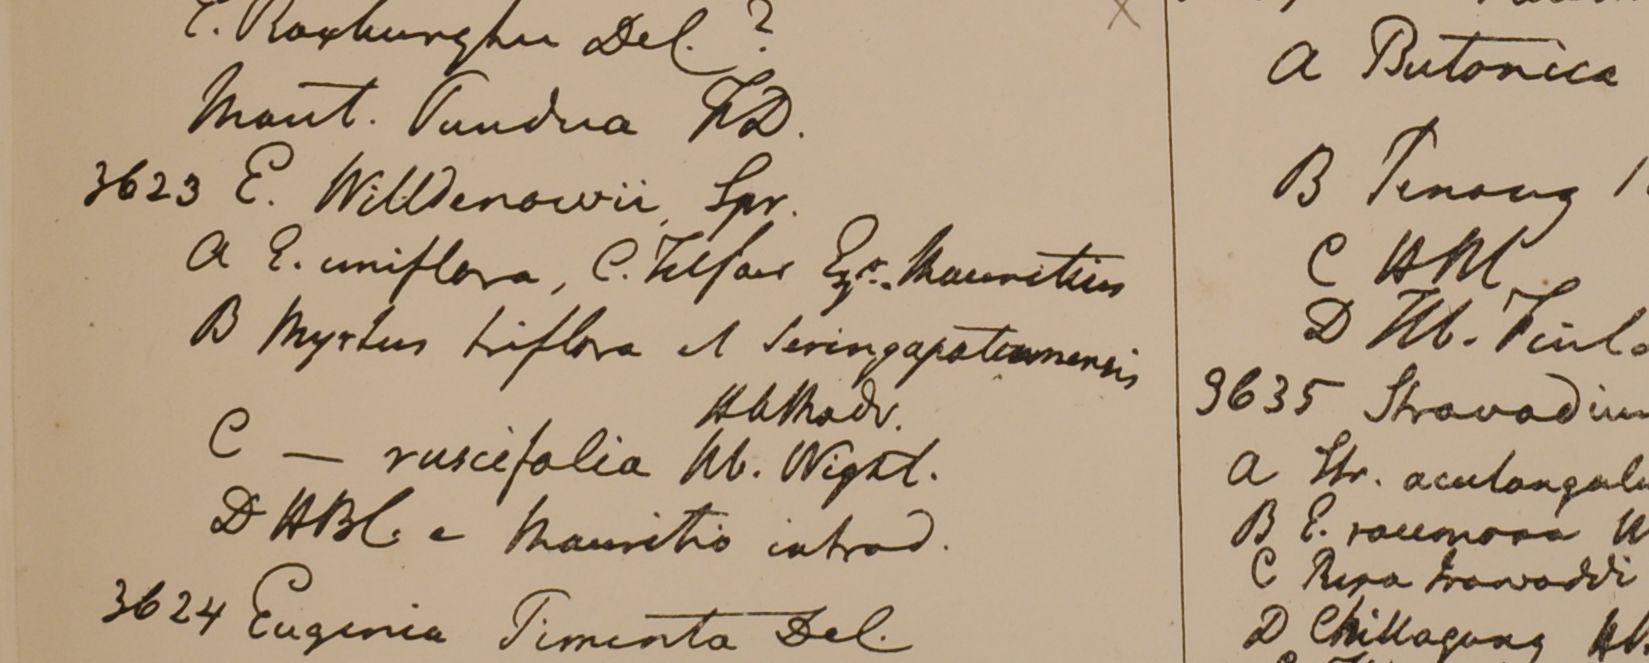 E. Roxburghii Del. ?
Mont. Pundua FD.
3623 E. Willdenowii, Spr.
A E. uniflora, C. Telfair Eqr. Mauritius
B Myrtus triflora et Seringapatamensis
HbMadr.
C — ruscifolia Hb. Wight.
D HBC. e Mauritio introd.
3624 Eugenia Pimenta Del.
A Butonica
B Penang
C HBC
D Hb. Finl
3635 Stravadium
A Str. acutangul
B E. racemosa H
C Ripa Irawaddi
D Chittagong Hb.